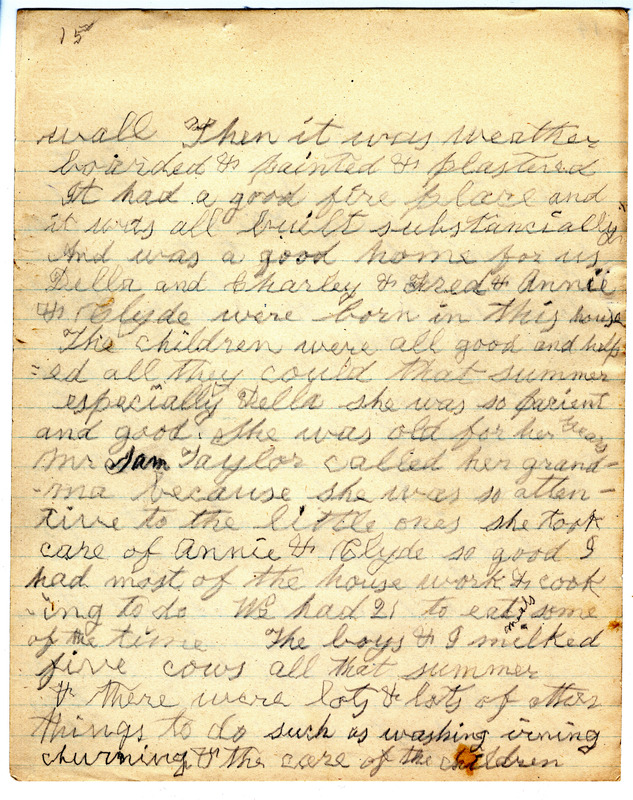 15
wall Then it was weather
boarded & painted & plastered
It had a good fire place and
it was all built substancially
And was a good home for us
Della and Charley & Fred & Annie
& Clyde were born in this house
The children were all good and help
=ed all they could that summer
especially Della she was so pacient
and good. She was old for her years
Mr Sam Taylor called her grand-
-ma because she was so atten-
tive to the little ones she took
care of Annie & Clyde so good I
had most of the house work & cook
-ing to do We had 21 to eat some
of the time The boys & I milked
five cows all that summer
& there were lots & lots of other
things to do such as washing irning
churning & the care of the children